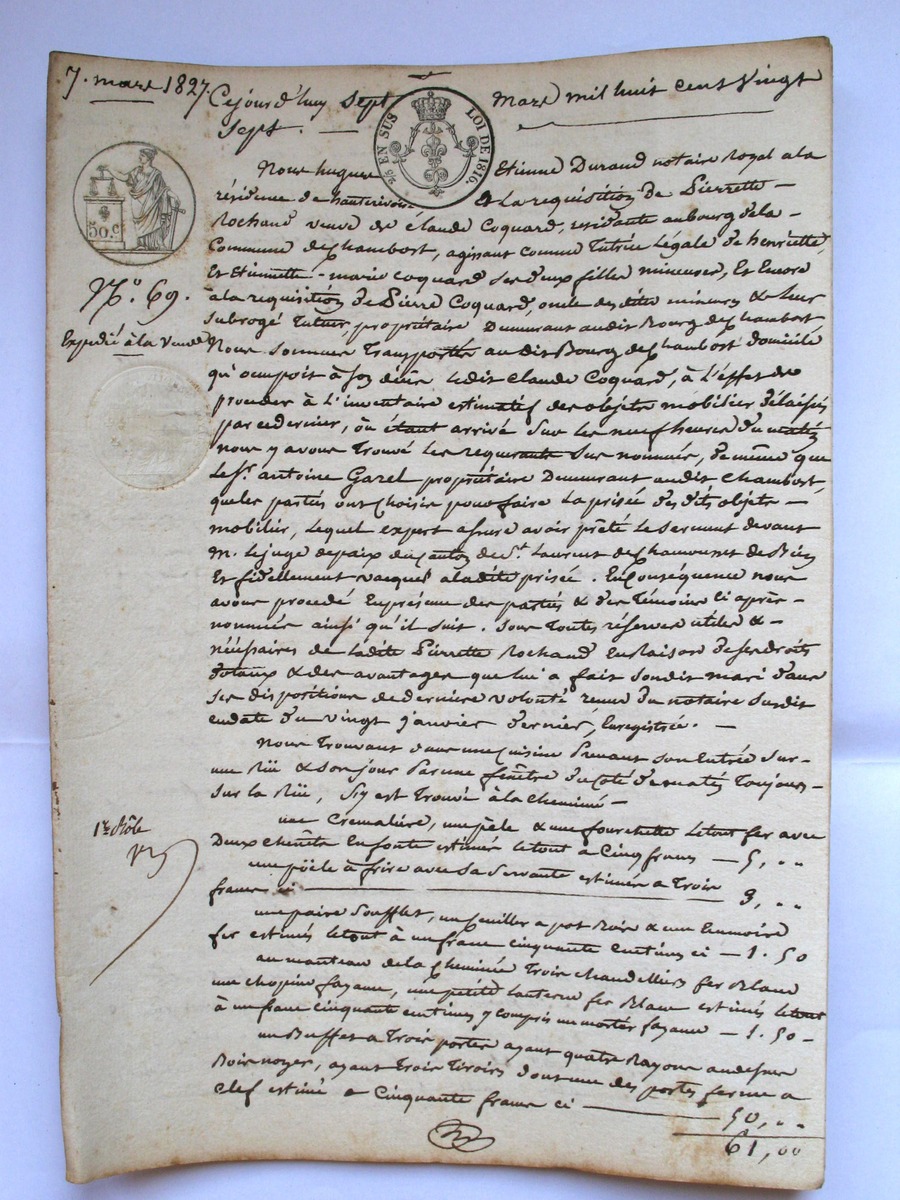 7. mars 1827.
Cejourd'huy sept Mars mil huit cent vingt
sept. —
EN SUS
LOI DE 1816.
50.c
Nous hugues Etienne Durand notaire Royal a la
résidence de hauterivoire & a la requisition de Pierrette —
Rochand veuve de Claude Coquard, residante au bourg de la —
Commune de Chambost, agissant comme Tutrice légale de henriette
Et Etiennette - marie coquard ses deux filles mineures, Et Encore
a la requisition de Pierre Coquard, oncle desdites mineurs & leur
subrogé Tuteur, propriétaire Demeurant audit Bourg de Chambost
N.o 69.
Expedié à la veuve
Nous sommes Transportés audit Bourg de Chambost domicile
qu'ocupoit à son décès ledit Claude Coquard, à l'effet de
proceder à l'inventaire estimatif des objets mobilier délaissés
par cedernier, où étant arrivé sur les neuf heures du matin
nous y avons Trouvé les requerants sus nommés, de même que
le Sr. antoine Garel propriétaire Demeurant audit Chambost,
que les parties ont choisir pour faire la prisée desdits objets —
mobilier, lequel expert assure avoir prêté le serment devant
M. le juge depaix du canton de St. Laurent de Chamousset de Bien
Et fidellement vacquer a la dite prisée. En conséquence nous
avons procédé En présence des parties & des Témoins ci après —
nommés ainsi qu'il suit. sous Toutes réserves utiles & —
nécéssaires de ladite Pierrette Rochand En Raison de ses droits
dotaux & des avantages que lui a fait sondit mari dans
ses dispositions de dernière volonté reçue du notaire susdit
en date du vingt janvier dernier, Enregistrée. —
Nous Trouvant dans une Cuisine Prenant son Entrée sur —
une Rüe & son jour Par une fenêtre du coté de matin Toujours
sur la Rüe, s'y est Trouvé à la Cheminée —
1er Rôle
une Crémalière, une pèle & une fourchette le tout fer avec
Deux chenêts En fonte estimés le tout a Cinq francs — 5, ..
une pöele à frire avec sa servante estimés a Trois
francs ci — 3, ..
une paire Soufflet, un cuiller a pot Bois & une Ecumoire
fer estimés le tout à un franc cinquante centimes ci — 1.50
au manteau de la Cheminée Trois chandelliers fer Blanc
une chopine fayance, une petite Lanterne fer Blanc estimés le tout
à un franc cinquante centimes y compris un mortier fayance — 1.50 —
un Buffet a Trois portes ayant quatre Rayons audessus
Bois noyer, ayant Trois Tiroirs dont une des portes ferme a
clef estimé a Cinquante francs ci — 50, ..
61,00